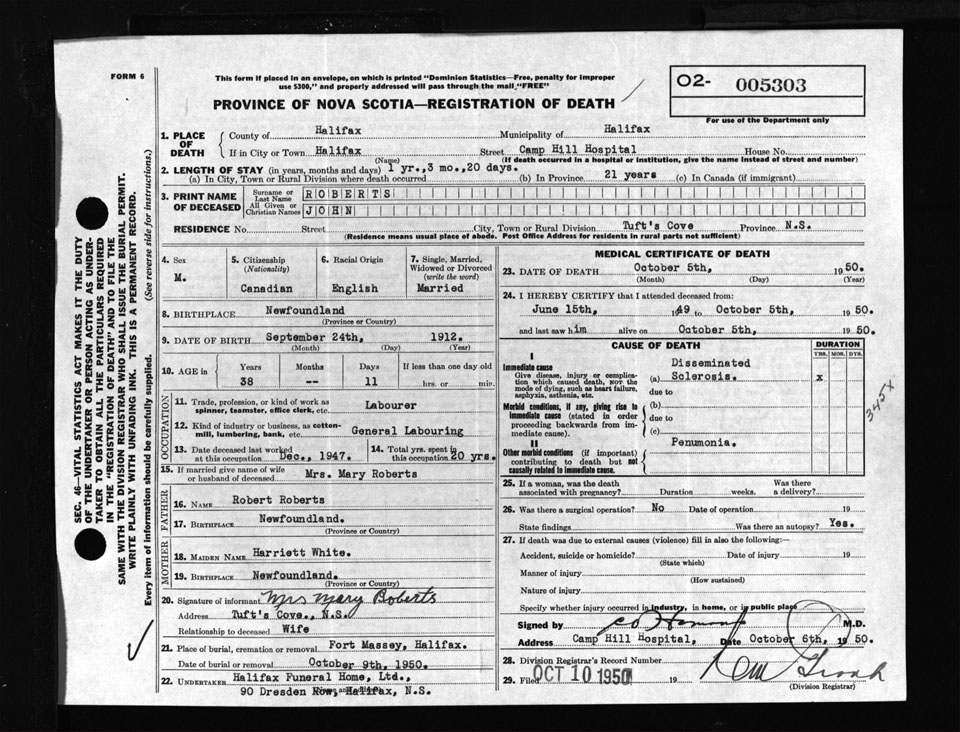 FORM 6
This form if placed in an envelope, on which is printed "Dominion Statistics—Free, penalty for improper
use $300," and properly addressed will pass through the mail "FREE"
O2- 005303
For use of the Department only
PROVINCE OF NOVA SCOTIA—REGISTRATION OF DEATH
1. PLACE OF DEATH
County of Halifax Municipality of Halifax
If in City or Town Halifax Street Camp Hill Hospital House No.
(Name) (If death occurred in a hospital or institution, give the name instead of street and number)
2. LENGTH OF STAY (in years, months and days) 1 yr.,3 mo.,20 days.
(a) In City, Town or Rural Division where death occurred (b) In Province 21 years (c) In Canada (if immigrant)
3. PRINT NAME OF DECEASED
Surname or Last Name ROBERTS
All Given or Christian Names JOHN
RESIDENCE No. Street City, Town or Rural Division Tuft's Cove Province N.S.
(Residence means usual place of abode. Post Office Address for residents in rural parts not sufficient)
4. Sex M.
5. Citizenship (Nationality) Canadian
6. Racial Origin English
7. Single, Married, Widowed or Divorced (write the word) Married
8. BIRTHPLACE Newfoundland
(Province or Country)
9. DATE OF BIRTH September 24th, 1912.
(Month) (Day) (Year)
10. AGE in Years Months Days If less than one day old
38 -- 11 hrs. or min.
OCCUPATION
11. Trade, profession, or kind of work as
spinner, teamster, office clerk, etc. Labourer
12. Kind of industry or business, as cotton-
mill, lumbering, bank, etc. General Labouring
13. Date deceased last worked
at this occupation Dec., 1947.
14. Total yrs. spent in
this occupation 20 yrs.
15. If married give name of wife
or husband of deceased Mrs. Mary Roberts
FATHER
16. NAME Robert Roberts
17. BIRTHPLACE Newfoundland.
(Province or Country)
MOTHER
18. MAIDEN NAME Harriett White.
19. BIRTHPLACE Newfoundland.
(Province or Country)
20. Signature of informant Mrs Mary Roberts
Address Tuft's Cove., N.S.
Relationship to deceased Wife
21. Place of burial, cremation or removal Fort Massey, Halifax.
Date of burial or removal October 9th, 1950.
22. UNDERTAKER Halifax Funeral Home, Ltd.,
90 Dresden Row, Halifax, N.S.
MEDICAL CERTIFICATE OF DEATH
23. DATE OF DEATH October 5th, 1950.
(Month) (Day) (Year)
24. I HEREBY CERTIFY that I attended deceased from:
June 15th, 1949 to October 5th, 1950.
and last saw him alive on October 5th, 1950.
CAUSE OF DEATH DURATION
YRS. MOS. DYS.
I
Immediate cause
Give disease, injury or complica-
tion which caused death, NOT the
mode of dying, such as heart failure,
asphyxia, asthenia, etc.
Disseminated
(a) Sclerosis. x
due to
Morbid conditions, if any, giving rise to
immediate cause (stated in order
proceeding backwards from im-
mediate cause).
(b)
due to
(c)
II
Other morbid conditions (if important)
contributing to death but not
causally related to immediate cause.
Penumonia.
345x
25. If a woman, was the death
associated with pregnancy? Duration weeks. Was there
a delivery?
26. Was there a surgical operation? No Date of operation 19
State findings Was there an autopsy? Yes.
27. If death was due to external causes (violence) fill in also the following:—
Accident, suicide or homicide? Date of injury 19
(State which)
Manner of injury
(How sustained)
Nature of injury
Specify whether injury occurred in industry, in home, or in public place
Signed by M.D.
Address Camp Hill Hospital, Date October 6th, 1950.
28. Division Registrar's Record Number
29. Filed OCT 10 1950 19
(Division Registrar)
SEC. 46—VITAL STATISTICS ACT MAKES IT THE DUTY
OF THE UNDERTAKER OR PERSON ACTING AS UNDER-
TAKER TO OBTAIN ALL THE PARTICULARS REQUIRED
IN THE "REGISTRATION OF DEATH" AND TO FILE THE
SAME WITH THE DIVISION REGISTRAR WHO SHALL ISSUE THE BURIAL PERMIT.
WRITE PLAINLY WITH UNFADING INK. THIS IS A PERMANENT RECORD.
Every item of information should be carefully supplied. (See reverse side for instructions.)